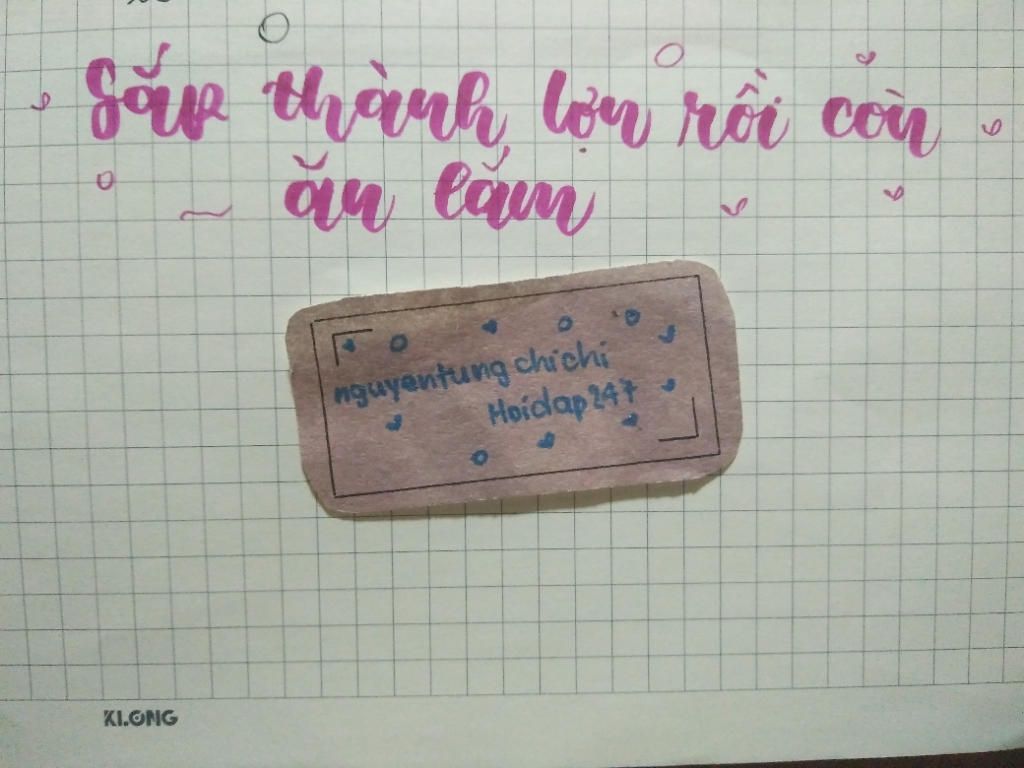 Sắp thành lợn rồi còn
ăn lắm
nguyentungchichi
Hoidap247
KLONG